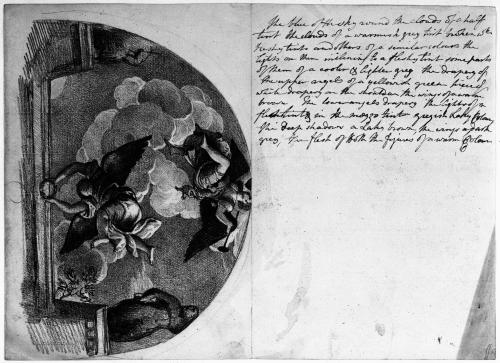 The blue of the sky round the clouds of a half
tint the clouds of a warmish grey tint broken with
fleshy tints and others of a similar colour the
lights on them inclining to a fleshy tint some parts
of them of a cooler & lighter grey the drapery of
the upper angel of a yellowish green
with drapery on the shoulder the wings a warm
brown The lower angels drapery the lights of a
flesh tint & in the mezzo tint greyish Laky
the deep shadows a Laky brown, the wings a dark
grey, The flesh of both the figures of a warm Colour